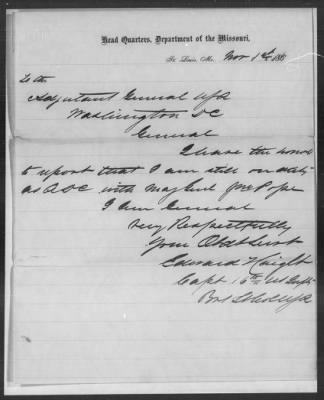 Head Quarters, Department of the Missouri,
St. Louis, Mo. Nov 1st 186
To the
Adjutant General USA
Washington DC
General
I have the honor
to report that I am still on duty
as ADC with Maj Genl Jno Pope
I am General
Very Respectfully
Your Obdt Servt
Edward Haight
Capt 16th US Infty
Bvt